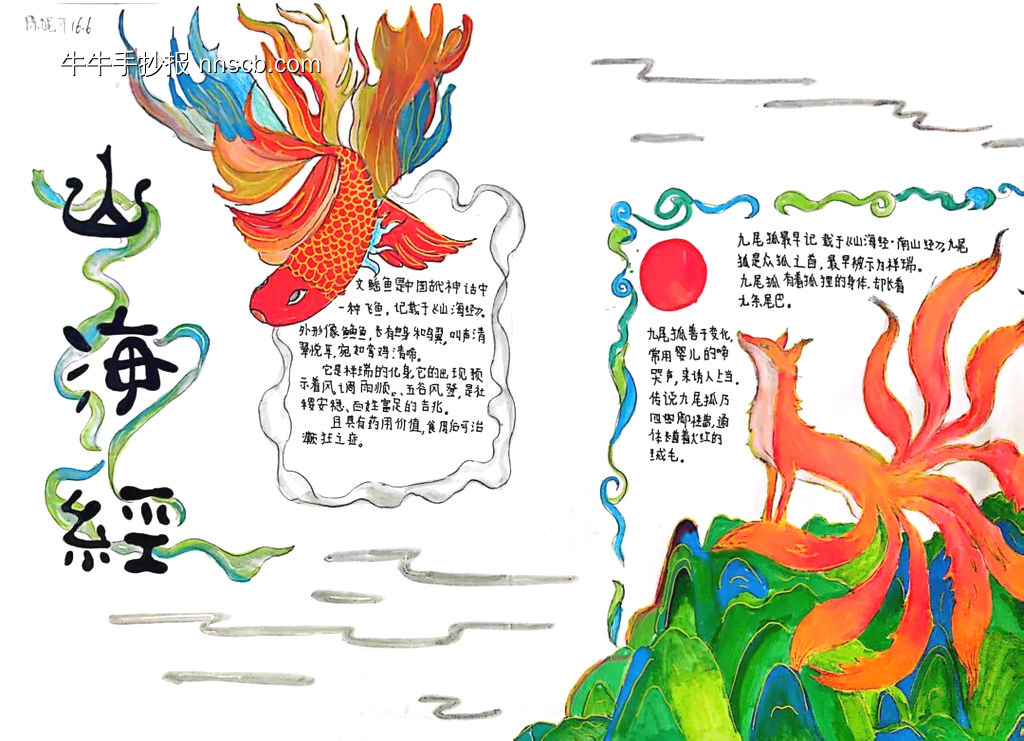 16.6
牛牛手抄报 nhscb.com
山
海
經
文鳐鱼是中国古代神话中
一种飞鱼。记载于《山海经》。
外形像鲤鱼,长有鱼身和鸟翼,叫声清
翠悦耳,宛如鸾鸡清啼。
它是祥瑞的化身,它的出现预
示着风调雨顺、五谷风登,是社
稷安稳、百姓富足的吉兆。
且具有药用价值,食用后可治
癫狂之症。
九尾狐最早记载于《山海经·南山经》,九尾
狐是众狐之首,最早被示为祥瑞。
九尾狐有着狐狸的身体,却长着
九条尾巴。
九尾狐善于变化,
常用婴儿的啼
哭声,来诱人上当。
传说九尾狐乃
四脚怪兽,通
体长着火红的
绒毛。